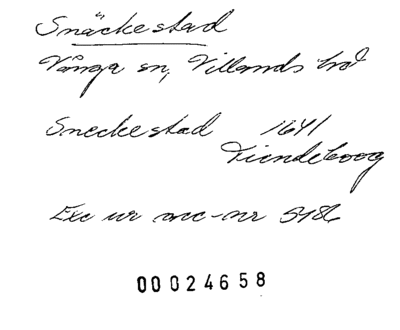 Snäckestad
Vånga sn, Villands hd
Sneckestad 1641
Tiendeboog
Exc ur acc-nr 5186
00024658